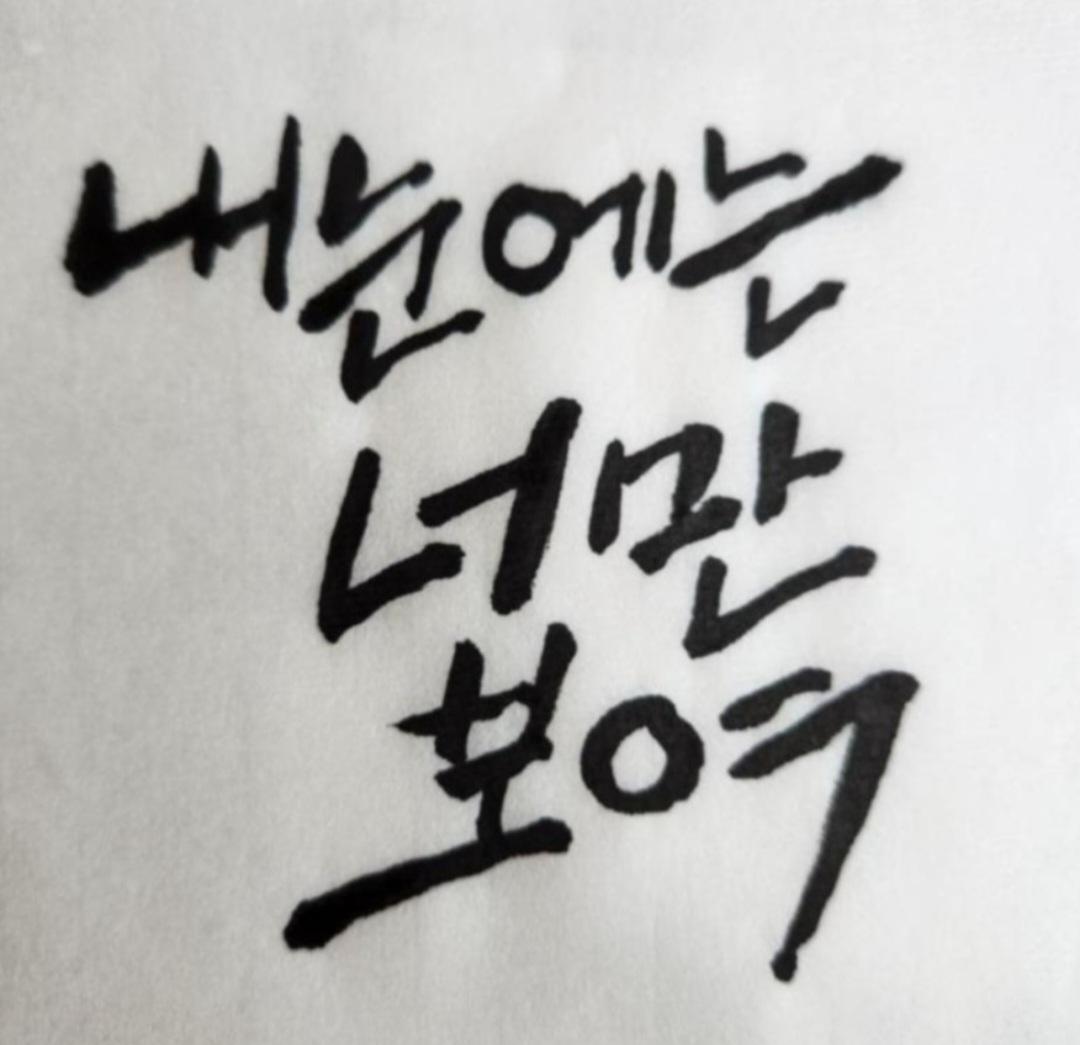 내 눈에는
너만
보여